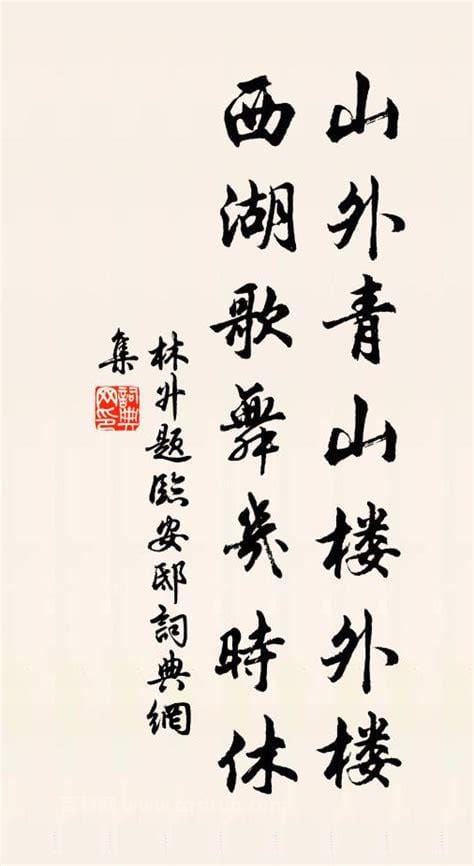 山外青山楼外楼
西湖歌舞幾時休
林升題臨安邸詞典網
集
詞典
网印